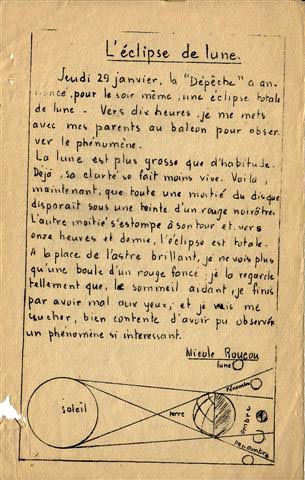 L'éclipse de lune.
Jeudi 29 janvier, la "Dépêche" a an-
noncé, pour le soir même, une éclipse totale
de lune - Vers dix heures, je me mets
avec mes parents au balcon pour obser
ver le phénomène.
La lune est plus grosse que d'habitude.
Déjà, sa clarté se fait moins vive. Voilà,
maintenant, que toute une moitié du disque
disparait sous une teinte d'un rouge noirâtre.
L'autre moitié s'estompe à son tour et, vers
onze heures et demie, l'éclipse est totale.
A la place de l'astre brillant, je ne vois plus
qu'une boule d'un rouge foncé: je la regarde
tellement que, le sommeil aidant, je finis
par avoir mal aux yeux, et je vais me
coucher, bien contente d'avoir pu observer
un phénomène si interessant.
Nicole Roucou
lune
pénombre
soleil
terre
ombre
penombre